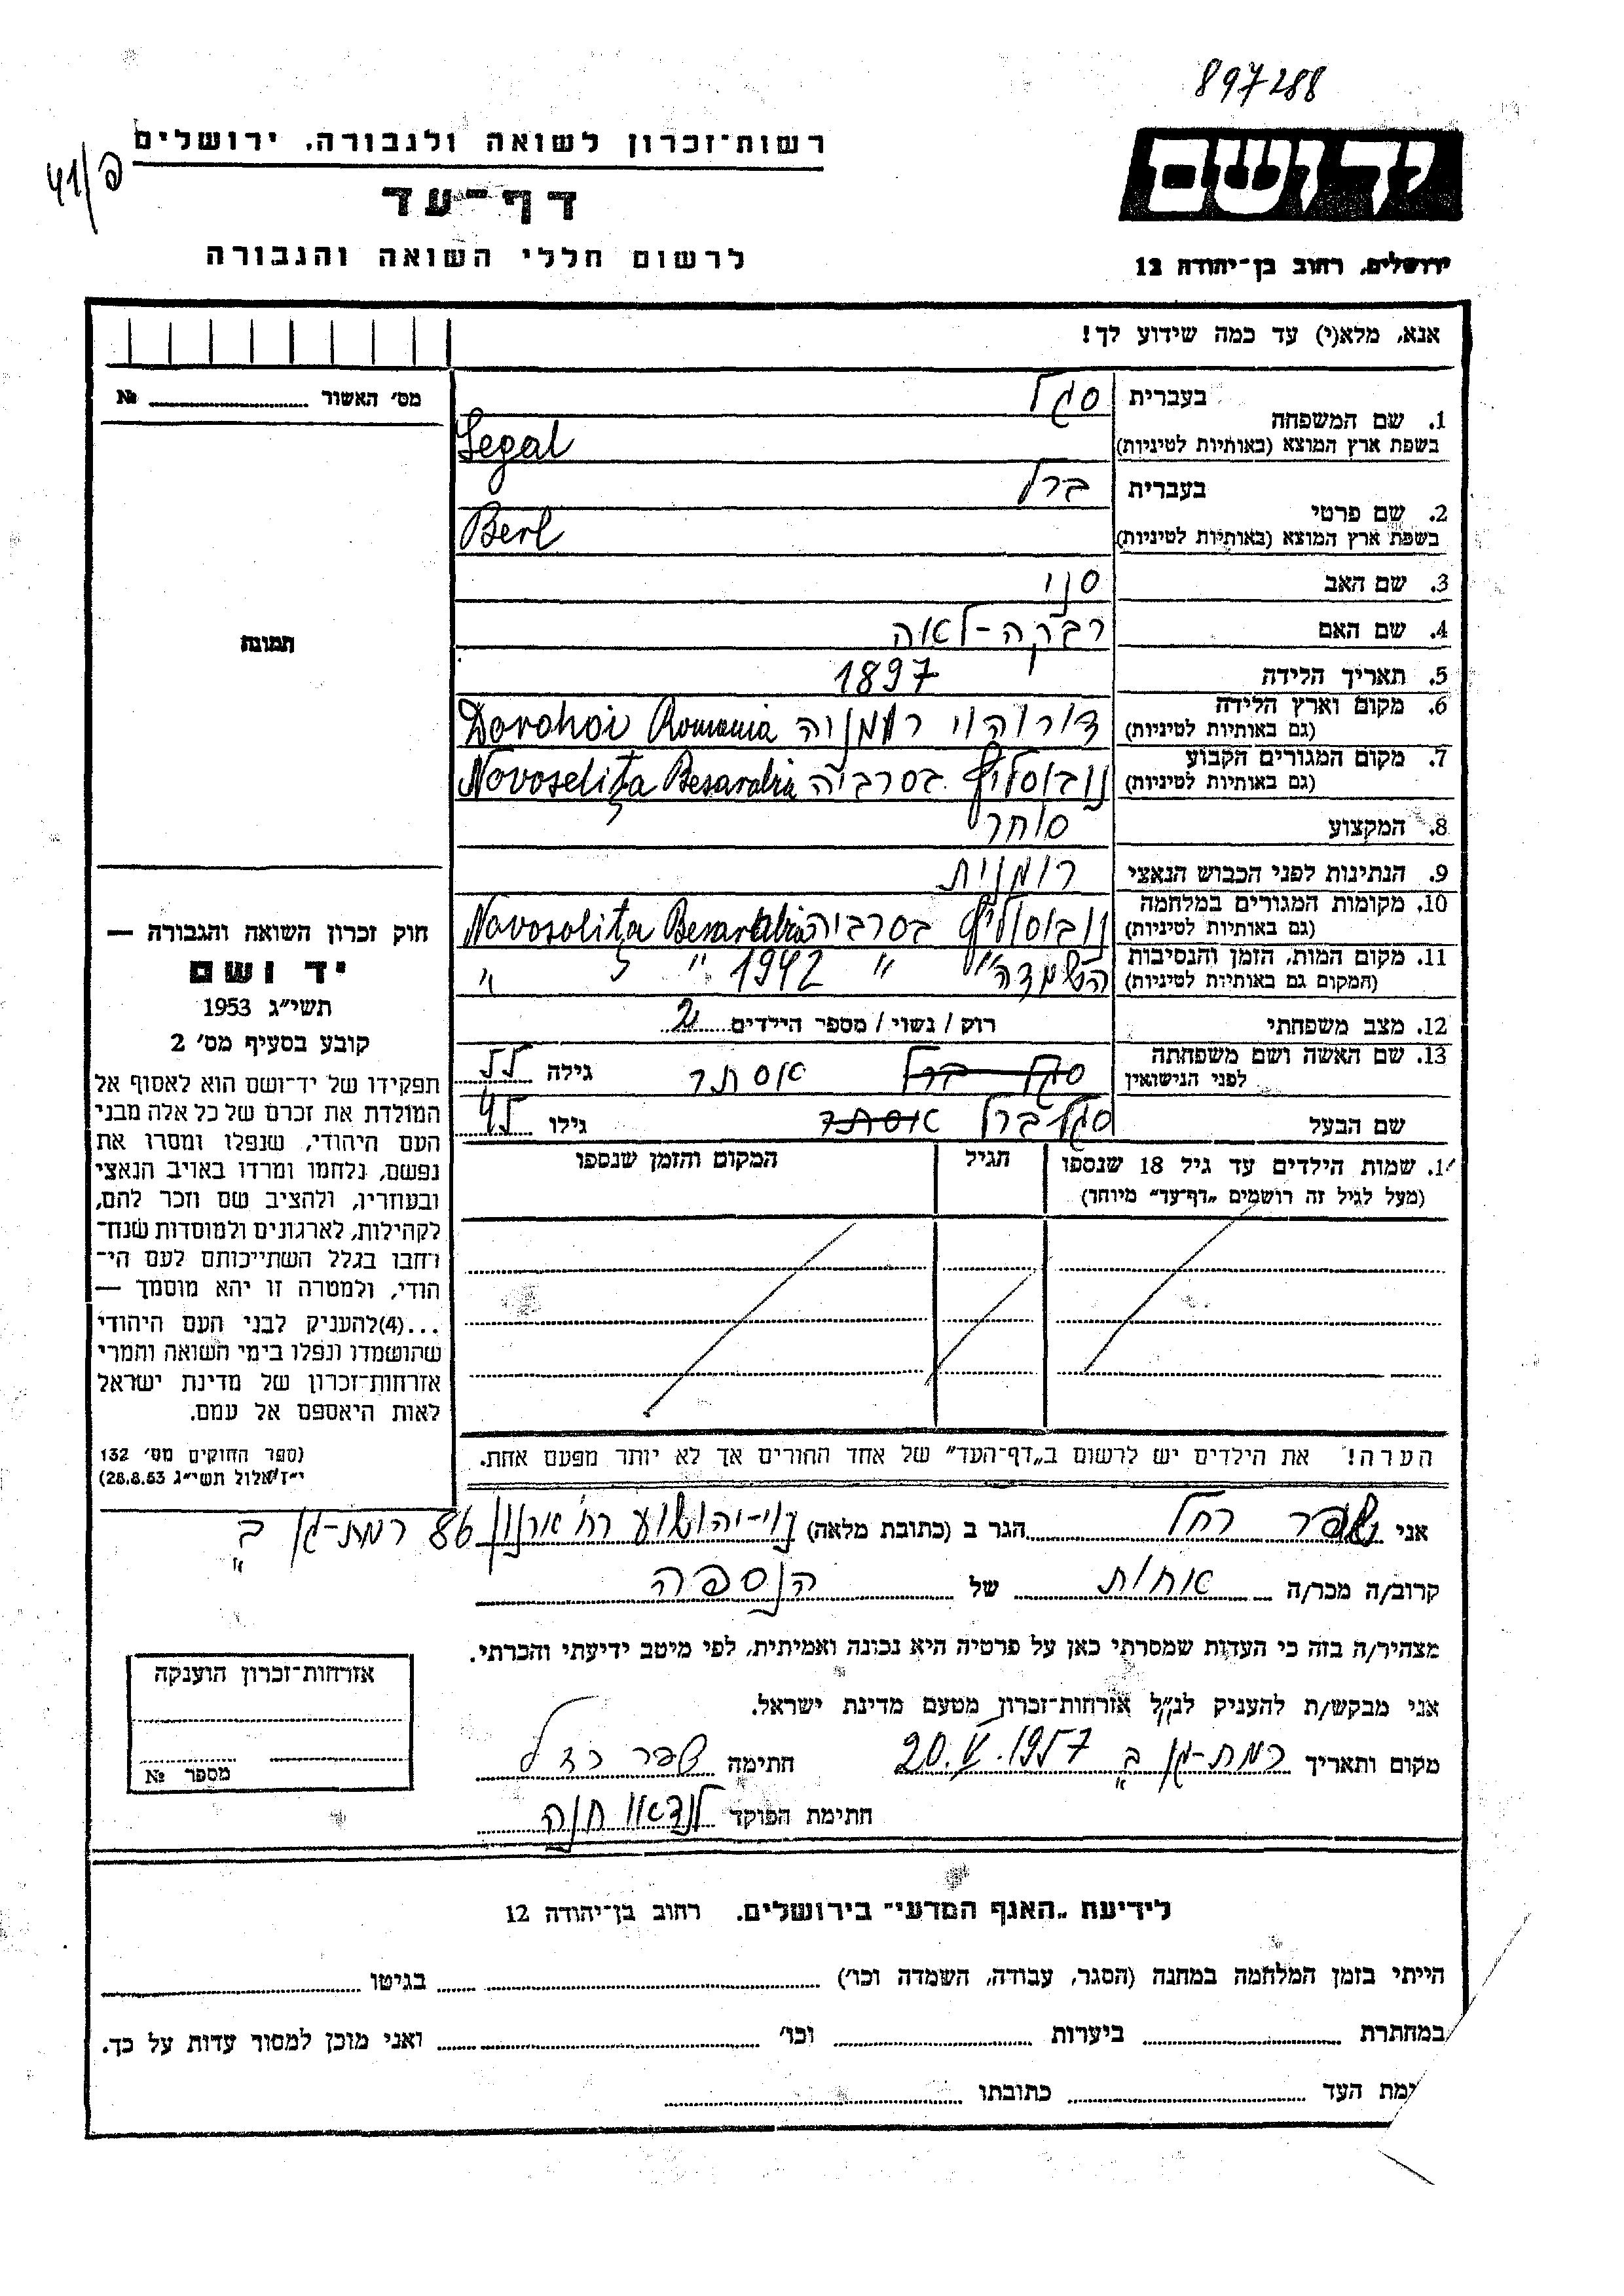 897288
רשות־זכרון לשואה ולגבורה, ירושלים
דף־עד
לרשום חללי השואה והגבורה
יד ושם
ירושלים, רחוב בן־יהודה 12
אנא, מלא(י) עד כמה שידוע לך!
מס׳ האשור № 
1. שם המשפחה בעברית סגל
בשפת ארץ המוצא (באותיות לטיניות) Segal
2. שם פרטי בעברית ברל
בשפת ארץ המוצא (באותיות לטיניות) Berl
3. שם האב סני
4. שם האם רבקה-לאה
תמונה
5. תאריך הלידה 1897
6. מקום וארץ הלידה (גם באותיות לטיניות) דורוהוי רומניה Dorohoi Romania
7. מקום המגורים הקבוע (גם באותיות לטיניות) בסרביה Novoseliţa Besarabia
8. המקצוע סוחר
9. הנתינות לפני הכבוש הנאצי רומנית
10. מקומות המגורים במלחמה (גם באותיות לטיניות) בסרביה Novosoliţa Besarabia
11. מקום המות, הזמן והנסיבות (המקום גם באותיות לטיניות) השמדה " " 1942 " "
12. מצב משפחתי רוק / נשוי / מספר הילדים 2
13. שם האשה ושם משפחתה לפני הנישואין סגל ברל אסתר גילה 55
שם הבעל סגל ברל אסתר גילו 45
חוק זכרון השואה והגבורה —
יד ושם
תשי״ג 1953
קובע בסעיף מס׳ 2
תפקידו של יד־ושם הוא לאסוף אל
המולדת את זכרם של כל אלה מבני
העם היהודי, שנפלו ומסרו את
נפשם, נלחמו ומרדו באויב הנאצי
ובעוזריו, ולהציב שם וזכר להם,
לקהילות, לארגונים ולמוסדות שנח־
רחבו בגלל השתייכותם לעם הי־
הודי, ולמטרה זו יהא מוסמך —
...(4)להעניק לבני העם היהודי
שהושמדו ונפלו בימי השואה והמרי
אזרחות־זכרון של מדינת ישראל
לאות היאספם אל עמם.
(ספר החוקים מס׳ 132
י״ז אלול תשי״ג 28.8.53)
שמות הילדים עד גיל 18 שנספו הגיל המקום והזמן שנספו
(מעל לגיל זה רושמים „דף־עד״ מיוחד)
הערה! את הילדים יש לרשום ב„דף־העד״ של אחד ההורים אך לא יותר מפעם אחת.
אני שפר רחל הגר ב (כתובת מלאה) נוי-יהושוע רח׳ ארנון 86 רמת-גן ב
קרוב/ה מכר/ה אחות של הנספה
מצהיר/ה בזה כי העדות שמסרתי כאן על פרטיה היא נכונה ואמיתית, לפי מיטב ידיעתי והכרתי.
אני מבקש/ת להעניק לנ״ל אזרחות־זכרון מטעם מדינת ישראל.
מקום ותאריך רמת-גן ב 20.V.1957 חתימה שפר רחל
חתימת הפוקד לנדאו חנה
אזרחות־זכרון הוענקה
מספר №
לידיעת „האגף המדעי״ בירושלים. רחוב בן־יהודה 12
הייתי בזמן המלחמה במחנה (הסגר, עבודה, השמדה וכו׳) בגיטו
במחתרת ביערות וכו׳ ואני מוכן למסור עדות על כך.
ימת העד כתובתו